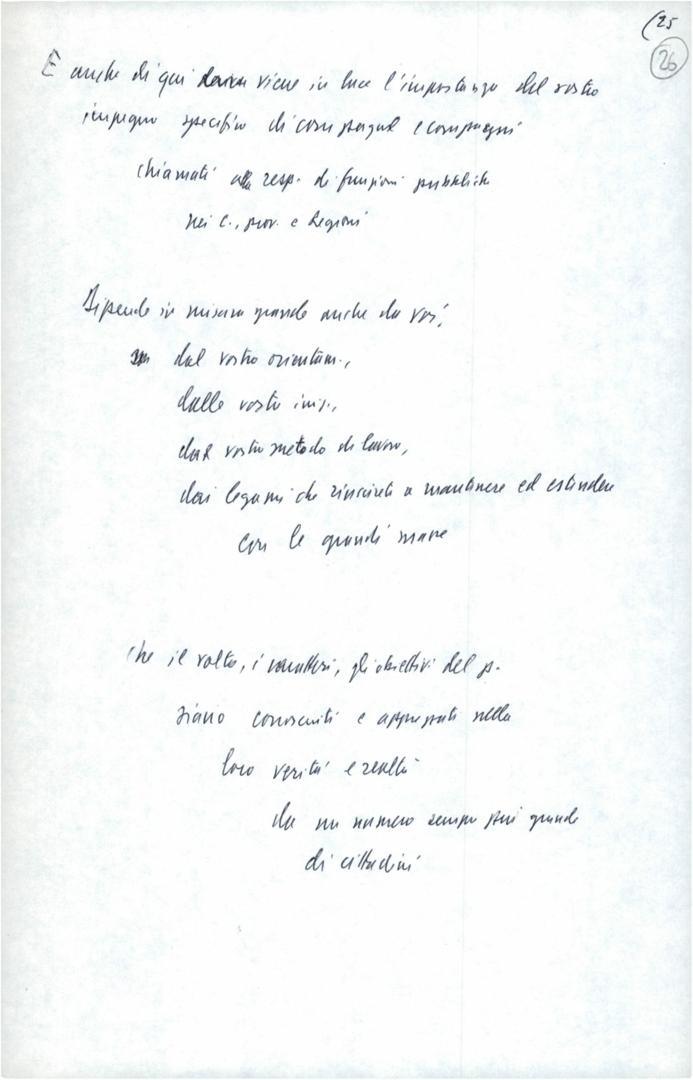 (25
26
E anche di qui viene in luce l'importanza del vostro
impegno specifico di compagne e compagni
chiamati alla resp. di funzioni pubbliche
nei C., prov. e Regioni
Dipende in misura grande anche da voi,
dal vostro orientam.,
dalle vostre iniz.,
dal vostro metodo di lavoro,
dai legami che riuscirete a mantenere ed estendere
con le grandi masse
che il volto, i caratteri, gli obiettivi del p.
siano conosciuti e apprezzati nella
loro verità e realtà
da un numero sempre più grande
di cittadini